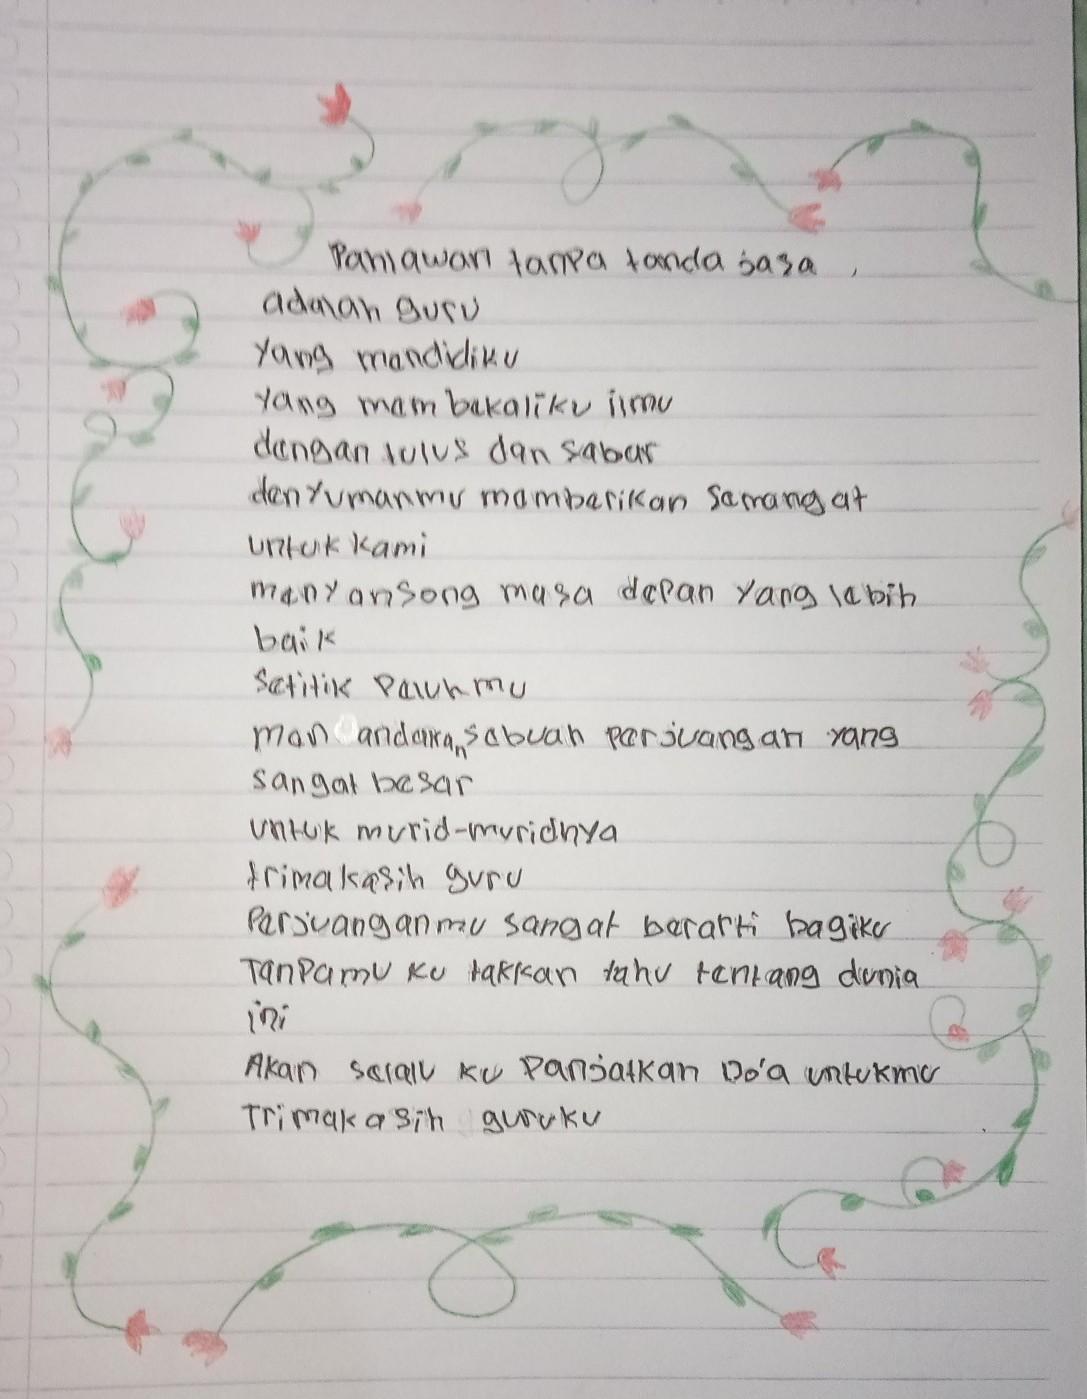 Pahlawan tanpa tanda jasa,
adalah guru
yang mendidiku
yang membekaliku ilmu
dengan tulus dan sabar
denyumanmu memberikan semangat
untuk kami
menyansong masa depan yang lebih
baik
setitik peluhmu
men andakan sebuah perjuangan yang
sangat besar
untuk murid-muridnya
trimakasih guru
Perjuanganmu sangat berarti bagiku
Tanpamu ku takkan tahu tentang dunia
ini
Akan selalu ku Panjatkan Do'a untukmu
Trimakasih guruku